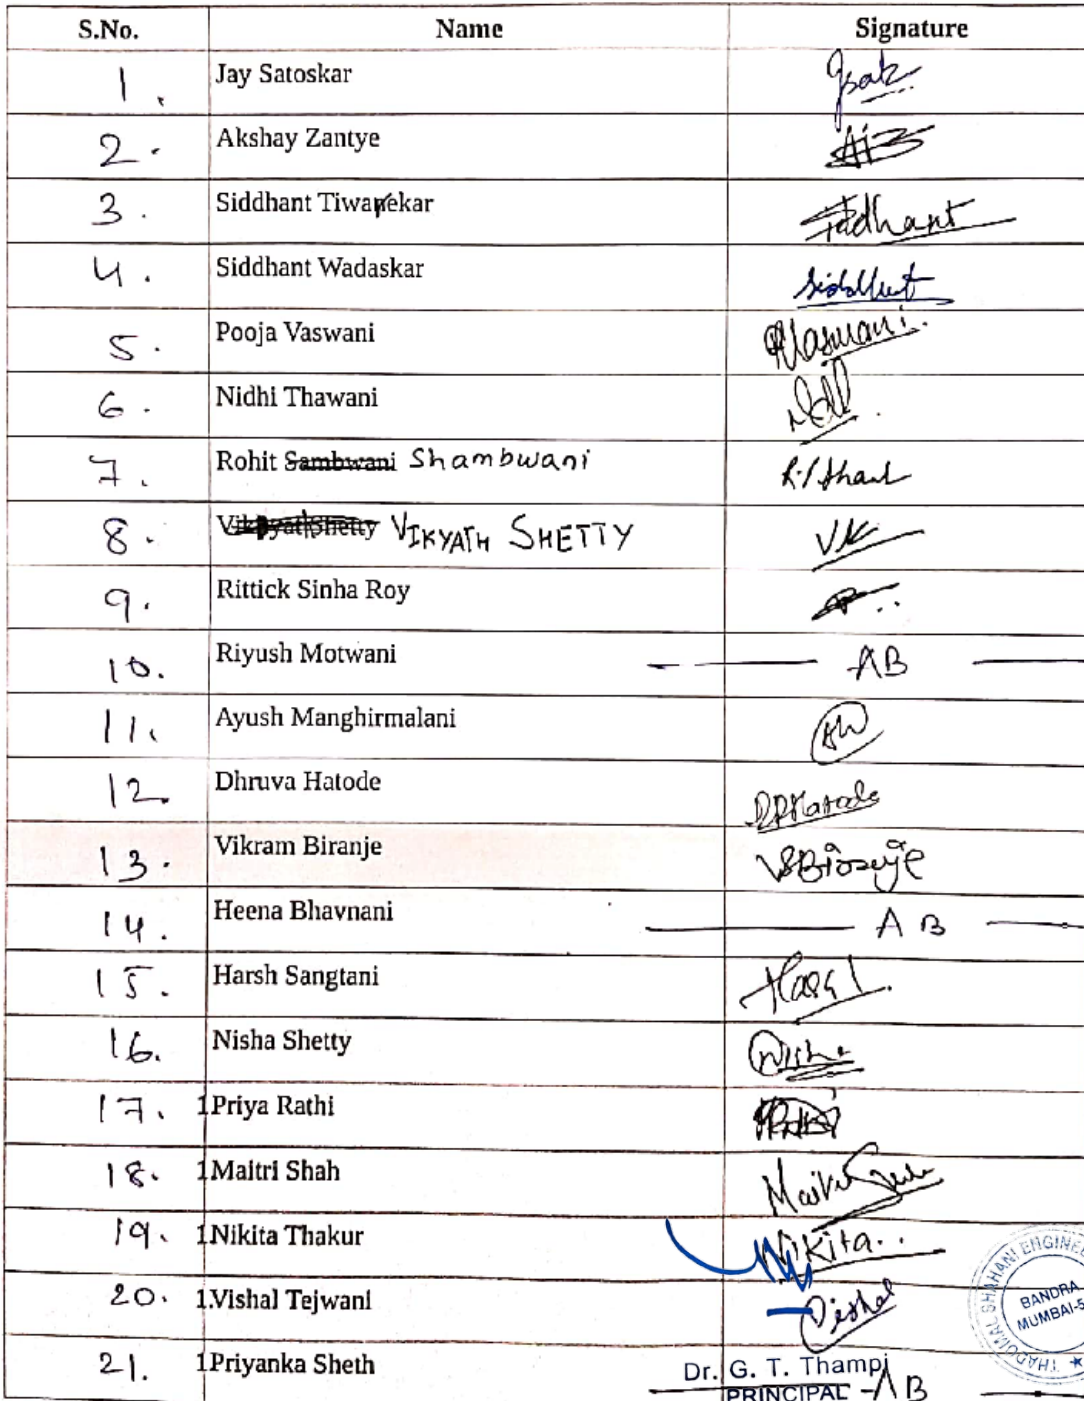 S.No. Name Signature
1. Jay Satoskar Jsatz
2. Akshay Zantye
3. Siddhant Tiwarekar Siddhant
4. Siddhant Wadaskar Siddhant
5. Pooja Vaswani PVaswani.
6. Nidhi Thawani
7. Rohit Sambwani Shambwani
8. Vikhyat Shetty VIKYATH SHETTY VK
9. Rittick Sinha Roy
10. Riyush Motwani AB
11. Ayush Manghirmalani
12. Dhruva Hatode
13. Vikram Biranje VSBiranje
14. Heena Bhavnani AB
15. Harsh Sangtani
16. Nisha Shetty Nisha
17. 1Priya Rathi
18. 1Maitri Shah Maitri
19. 1.Nikita Thakur Nikita..
20. 1.Vishal Tejwani Vishal
THADOMAL SHAHANI ENGINEE
BANDRA
MUMBAI-5
21. 1Priyanka Sheth AB
Dr. G. T. Thampi
PRINCIPAL